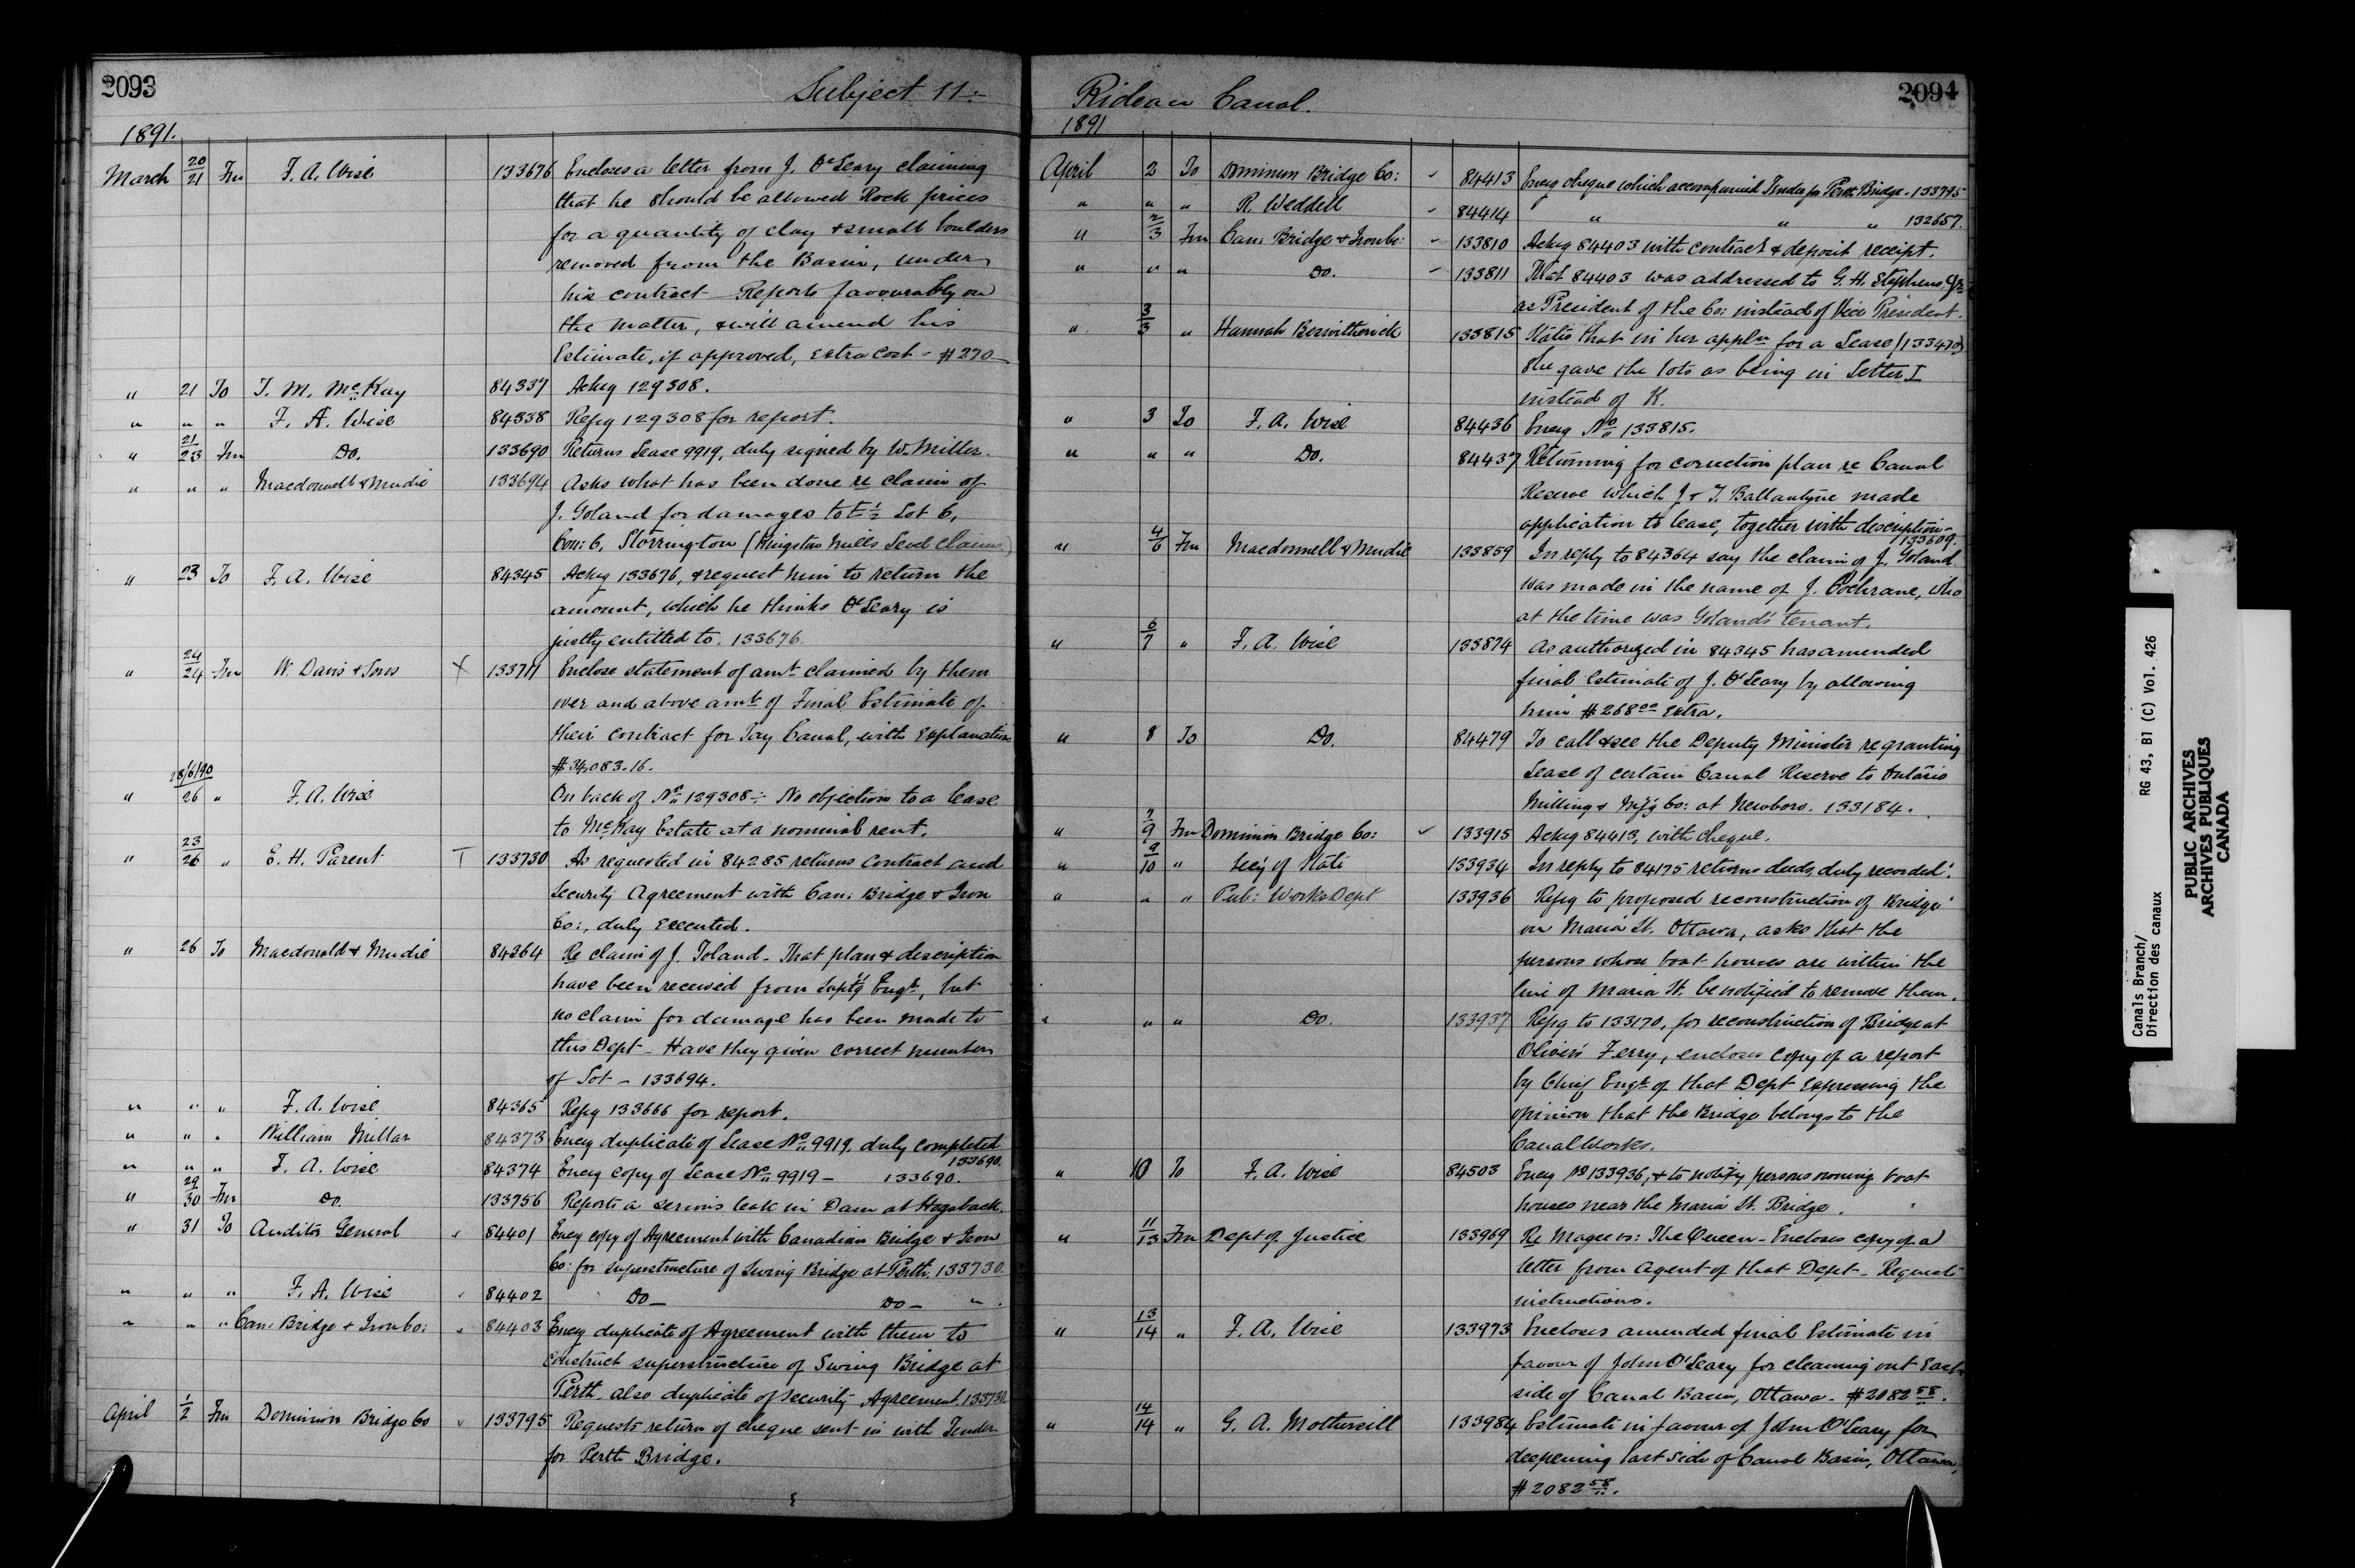 2093
Subject 11:-
1891.
March 20/21 Fm F. A. Wise 133676 Encloses a letter from J. O'Leary claiming
that he should be allowed Rock prices
for a quantity of clay & small boulders
removed from the Basin, under
his contract - Reports favourably on
the matter, & will amend his
Estimate, if approved, extra cost - $270
" 21 To T. M. McKay 84337 Ackg 129308.
" " " F. A. Wise 84338 Refg 129308 for report.
" 21/23 Fm Do. 133690 Returns Lease 9919, duly signed by W. Miller.
" " " Macdonnell & Mudie 133694 Asks what has been done re claim of
J. Toland for damages to E 1/2 Lot 6,
Con: 6, Storrington (Kingston Mills Level Claims)
" 23 To F. A. Wise 84345 Ackg 133676, & request him to return the
amount, which he thinks O'Leary is
justly entitled to. 133676.
" 24/24 Fm W. Davis & Sons X 133711 Enclose statement of amt. claimed by them
over and above amt. of Final Estimate of
their contract for Tay Canal, with explanation
$34,083.16.
" 28/6/90 / 26 " F. A. Wise On back of No. 129308:- No objection to a lease
to McKay Estate at a nominal rent.
" 23/26 " E. H. Parent T 133730 As requested in 84285 returns contract and
Security Agreement with Can: Bridge & Iron
Co:, duly executed.
" 26 To Macdonald & Mudie 84364 Re claim of J. Toland - That plan & description
have been received from Suptg Engr, but
no claim for damage has been made to
this Dept - Have they given correct number
of Lot - 133694.
" " " F. A. Wise 84365 Refg 133666 for report.
" " " William Millar 84373 Encg duplicate of Lease No. 9919, duly completed
133690.
" " " F. A. Wise 84374 Encg copy of Lease No. 9919 - 133690.
" 29/30 Fm Do. 133756 Reports a serious leak in Dam at Hogsback.
" 31 To Auditor General 84401 Encg copy of Agreement with Canadian Bridge & Iron
Co: for superstructure of Swing Bridge at Perth. 133730.
" " " F. A. Wise 84402 Do - Do - "
" " " Can: Bridge & Iron Co: 84403 Encg duplicate of Agreement with them to
construct superstructure of Swing Bridge at
Perth, also duplicate of Security Agreement. 133730.
April 1/2 Fm Dominion Bridge Co 133795 Requests return of cheque sent in with Tender
for Perth Bridge.
Rideau Canal.
2094
1891
April 2 To Dominion Bridge Co: ✓ 84413 Encg cheque which accompanied Tender for Perth Bridge - 133795
" " " R. Weddell ✓ 84414 " " " 132657.
" 2/3 Fm Can: Bridge & Iron Co: ✓ 133810 Ackg 84403 with contract & deposit receipt.
" " " Do. ✓ 133811 That 84403 was addressed to G. H. Stephens Jr.
as President of the Co: instead of Vice President.
" 3/3 " Hannah 133815 States that in her appln for a Lease (133470)
she gave the lots as being in Letter I
instead of K.
" 3 To F. A. Wise 84436 Encg No. 133815.
" " " Do. 84437 Returning for correction plan re Canal
Reserve which J & T. Ballantyne made
application to lease, together with description -
133609.
" 4/6 Fm Macdonnell & Mudie 133859 In reply to 84364 say the claim of J. Toland
was made in the name of J. Cochrane, who
at the time was Toland's tenant.
" 6/7 " F. A. Wise 133874 As authorized in 84345 has amended
final Estimate of J. O'Leary by allowing
him $268.00 extra.
" 8 To Do. 84479 To call & see the Deputy Minister re granting
Lease of certain Canal Reserve to Ontario
Milling & Mf'g Co: at Newboro. 133184.
" 7/9 Fm Dominion Bridge Co: ✓ 133915 Ackg 84413, with cheque.
" 9/10 " Sec'y of State 133934 In reply to 84175 returns deeds, duly recorded.
" " " Pub: Works Dept 133936 Refg to proposed reconstruction of Bridge
on Maria St. Ottawa, asks that the
persons whose boat houses are within the
line of Maria St. be notified to remove them.
" " " Do. 133937 Refg to 133170, for reconstruction of Bridge at
Oliver's Ferry, encloses copy of a report
by Chief Engr of that Dept expressing the
opinion that the Bridge belongs to the
Canal Works.
" 10 To F. A. Wise 84503 Encg No 133936, & to notify persons owning boat
houses near the Maria St. Bridge.
" 11/13 Fm Dept of Justice 133969 Re Magee vs: The Queen - Encloses copy of a
letter from Agent of that Dept - Requests
instructions.
" 13/14 " F. A. Wise 133973 Encloses amended final Estimate in
favour of John O'Leary for cleaning out East
side of Canal Basin, Ottawa - $2082.58.
" 14/14 " G. A. Mothersill 133984 Estimate in favour of John O'Leary for
deepening East side of Canal Basin, Ottawa,
$2082.58.
Canals Branch/ RG 43, B1 (C) Vol. 426
Direction des canaux
PUBLIC ARCHIVES
ARCHIVES PUBLIQUES
CANADA